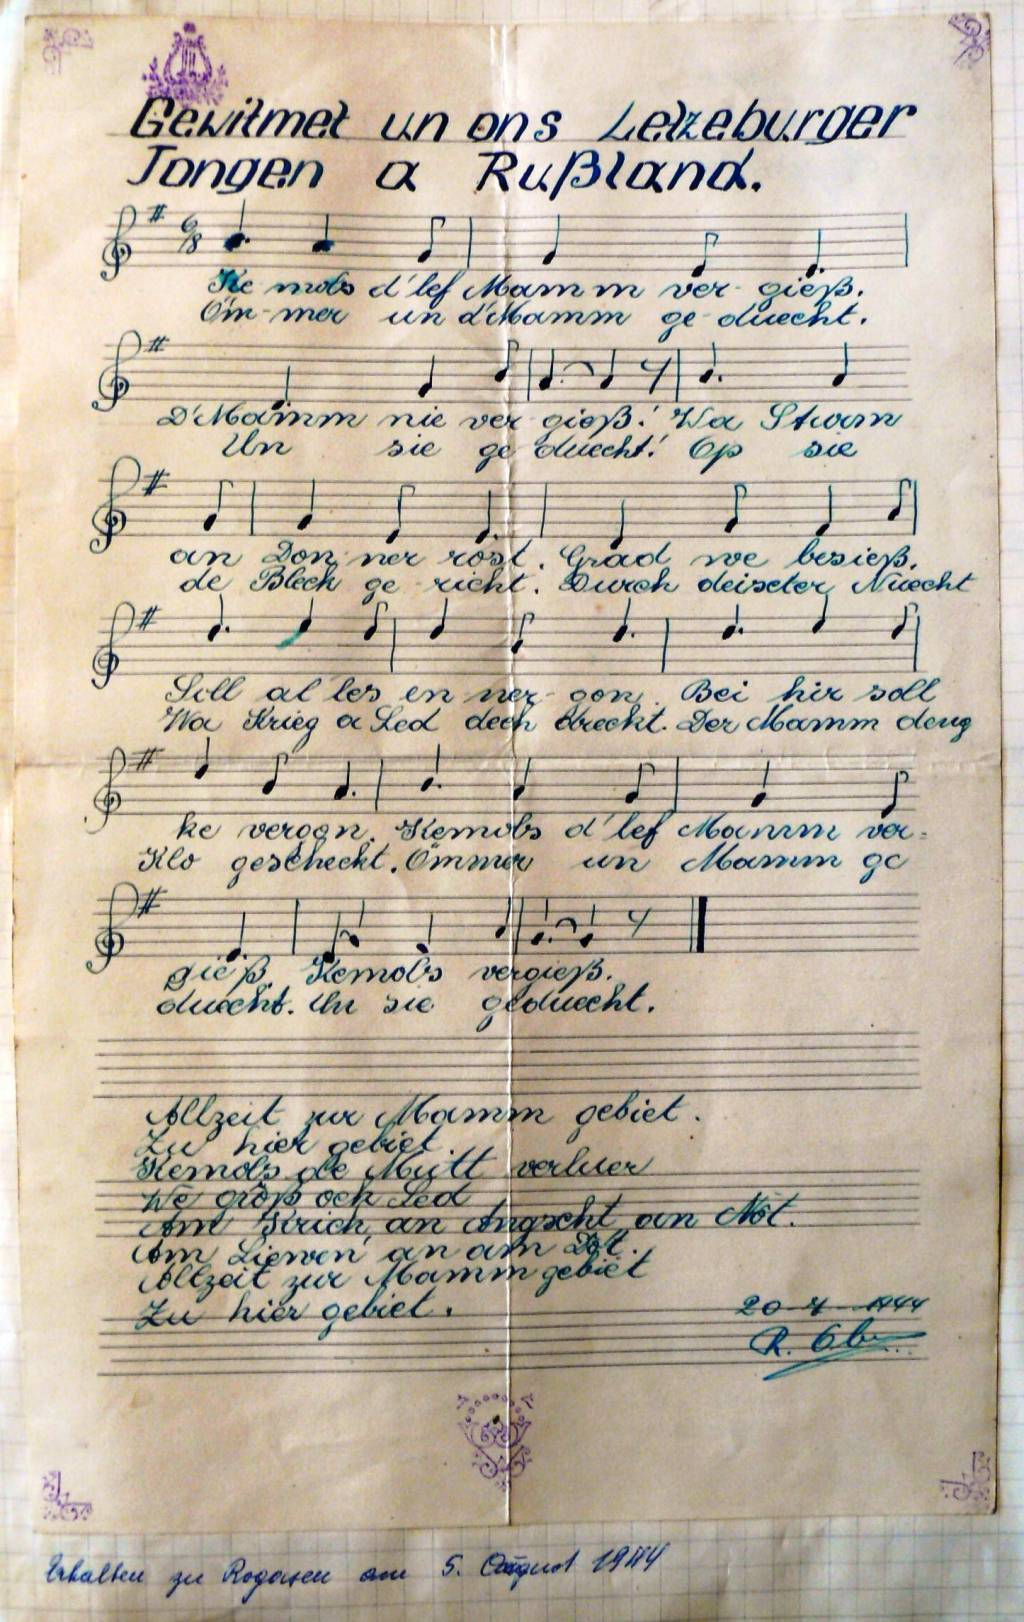 Gewitmet un ons Letzeburger
Jongen a Rußland.
6/8
Ke mols d'lef Mamm ver- gieß.
Öm-mer un d'Mamm ge duecht.
D'Mamm nie ver gieß! Wa Sturm
Un sie ge duecht! Op sie
an Don ner rost. Grad we besieß.
de Bleck ge richt. Durch deischter Nuecht
Soll al les en ner- gon. Bei hir soll
Wa Krieg a Led dech dreckt. Der Mamm deng
ke vergon. Kemols d'lef Mamm ver-
Klo gescheckt. Ömmer un Mamm ge
gieß. Kemols vergieß.
duecht. Un sie geduecht.
Allzeit zur Mamm gebiet.
Zu hier gebiet.
Kemols de Mutt verluer
We groß och Led
Am Krich, an Angscht, an Nöt.
Am Liewen an am Dot.
Allzeit zur Mamm gebiet
Zu hier gebiet.
20-7-1944
R.
Erhalten zu Rogasen am 5. August 1944